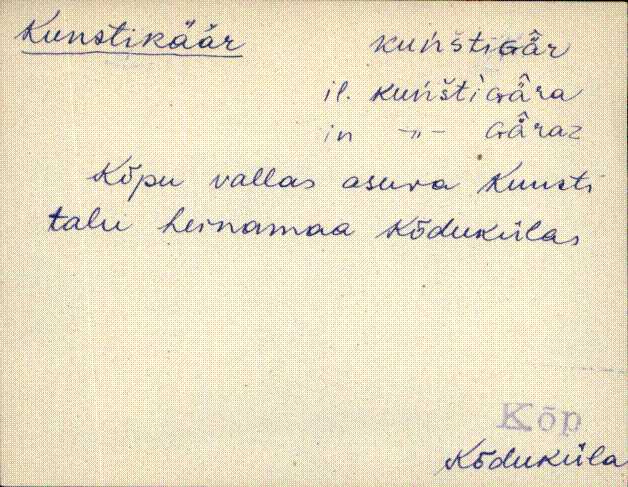 Kunstikäär kuńštiGä̂r
il. kuńštìGä̂ra
in -"- Gä̂raz
Kõpu vallas asuva Kunsti
talu heinamaa Kõdukülas
Kõp
Kõduküla